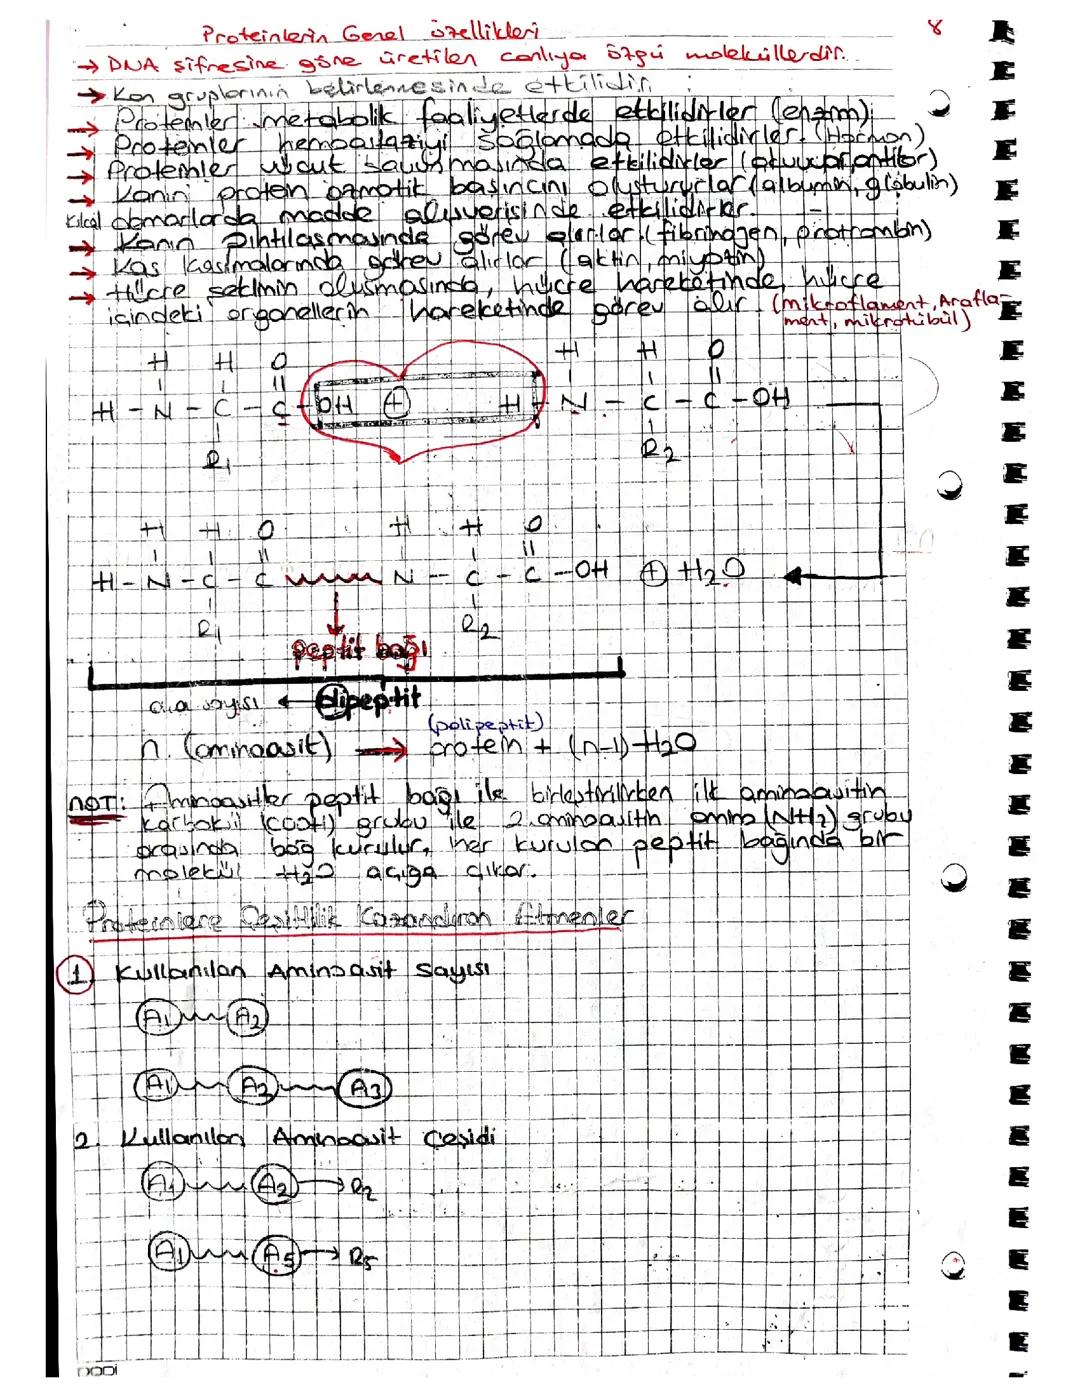 Proteinlerin Genel özellikleri
8
→ DNA şifresine göre üretilen canlıya özgü moleküllerdir.
→ Kan gruplarının belirlenmesinde etkilidir.
→ Proteinler metabolik faaliyetlerde etkilidirler (enzim).
→ Proteinler hemoastaziyi sağlamada etkilidirler. (Hormon)
→ Proteinler vücut savunmasında etkilidirler (antikor)
→ Kanın protein ozmotik basıncını oluştururlar (albumin, globulin)
Kılcal damarlarda madde alışverişinde etkilidirler.
→ Kanın pıhtılaşmasında görev alırlar. (fibrinojen, protrombin)
→ Kas kasılmalarında görev alırlar (aktin, miyozin)
→ Hücre şeklinin oluşmasında, hücre hareketinde, hücre
içindeki organellerin hareketinde görev alır. (mikroflament, Arafla-
ment, mikrotübül)
H H O H H O
H - N - C - C - OH + H - N - C - C - OH
R1 R2
H H O H H O
H - N - C - C N - C - C - OH + H2O
R1 R2
peptit bağı
a.a sayısı ← dipeptit
(polipeptit)
n. (aminoasit) → protein + (n-1) H2O
NOT: Aminoasitler peptit bağı ile birleştirilirken ilk aminoasitin
karboksil (COOH) grubu ile 2. aminoasitin amino (NH2) grubu
arasında bağ kurulur, her kurulan peptit bağında bir
molekül H2O açığa çıkar.
Proteinlere Çeşitlilik Kazandıran Etmenler
1 Kullanılan Aminoasit Sayısı
A1 A2
A1 A2 A3
2. Kullanılan Aminoasit Çeşidi
A1 A2 → R2
A1 A5 → R5
DODi